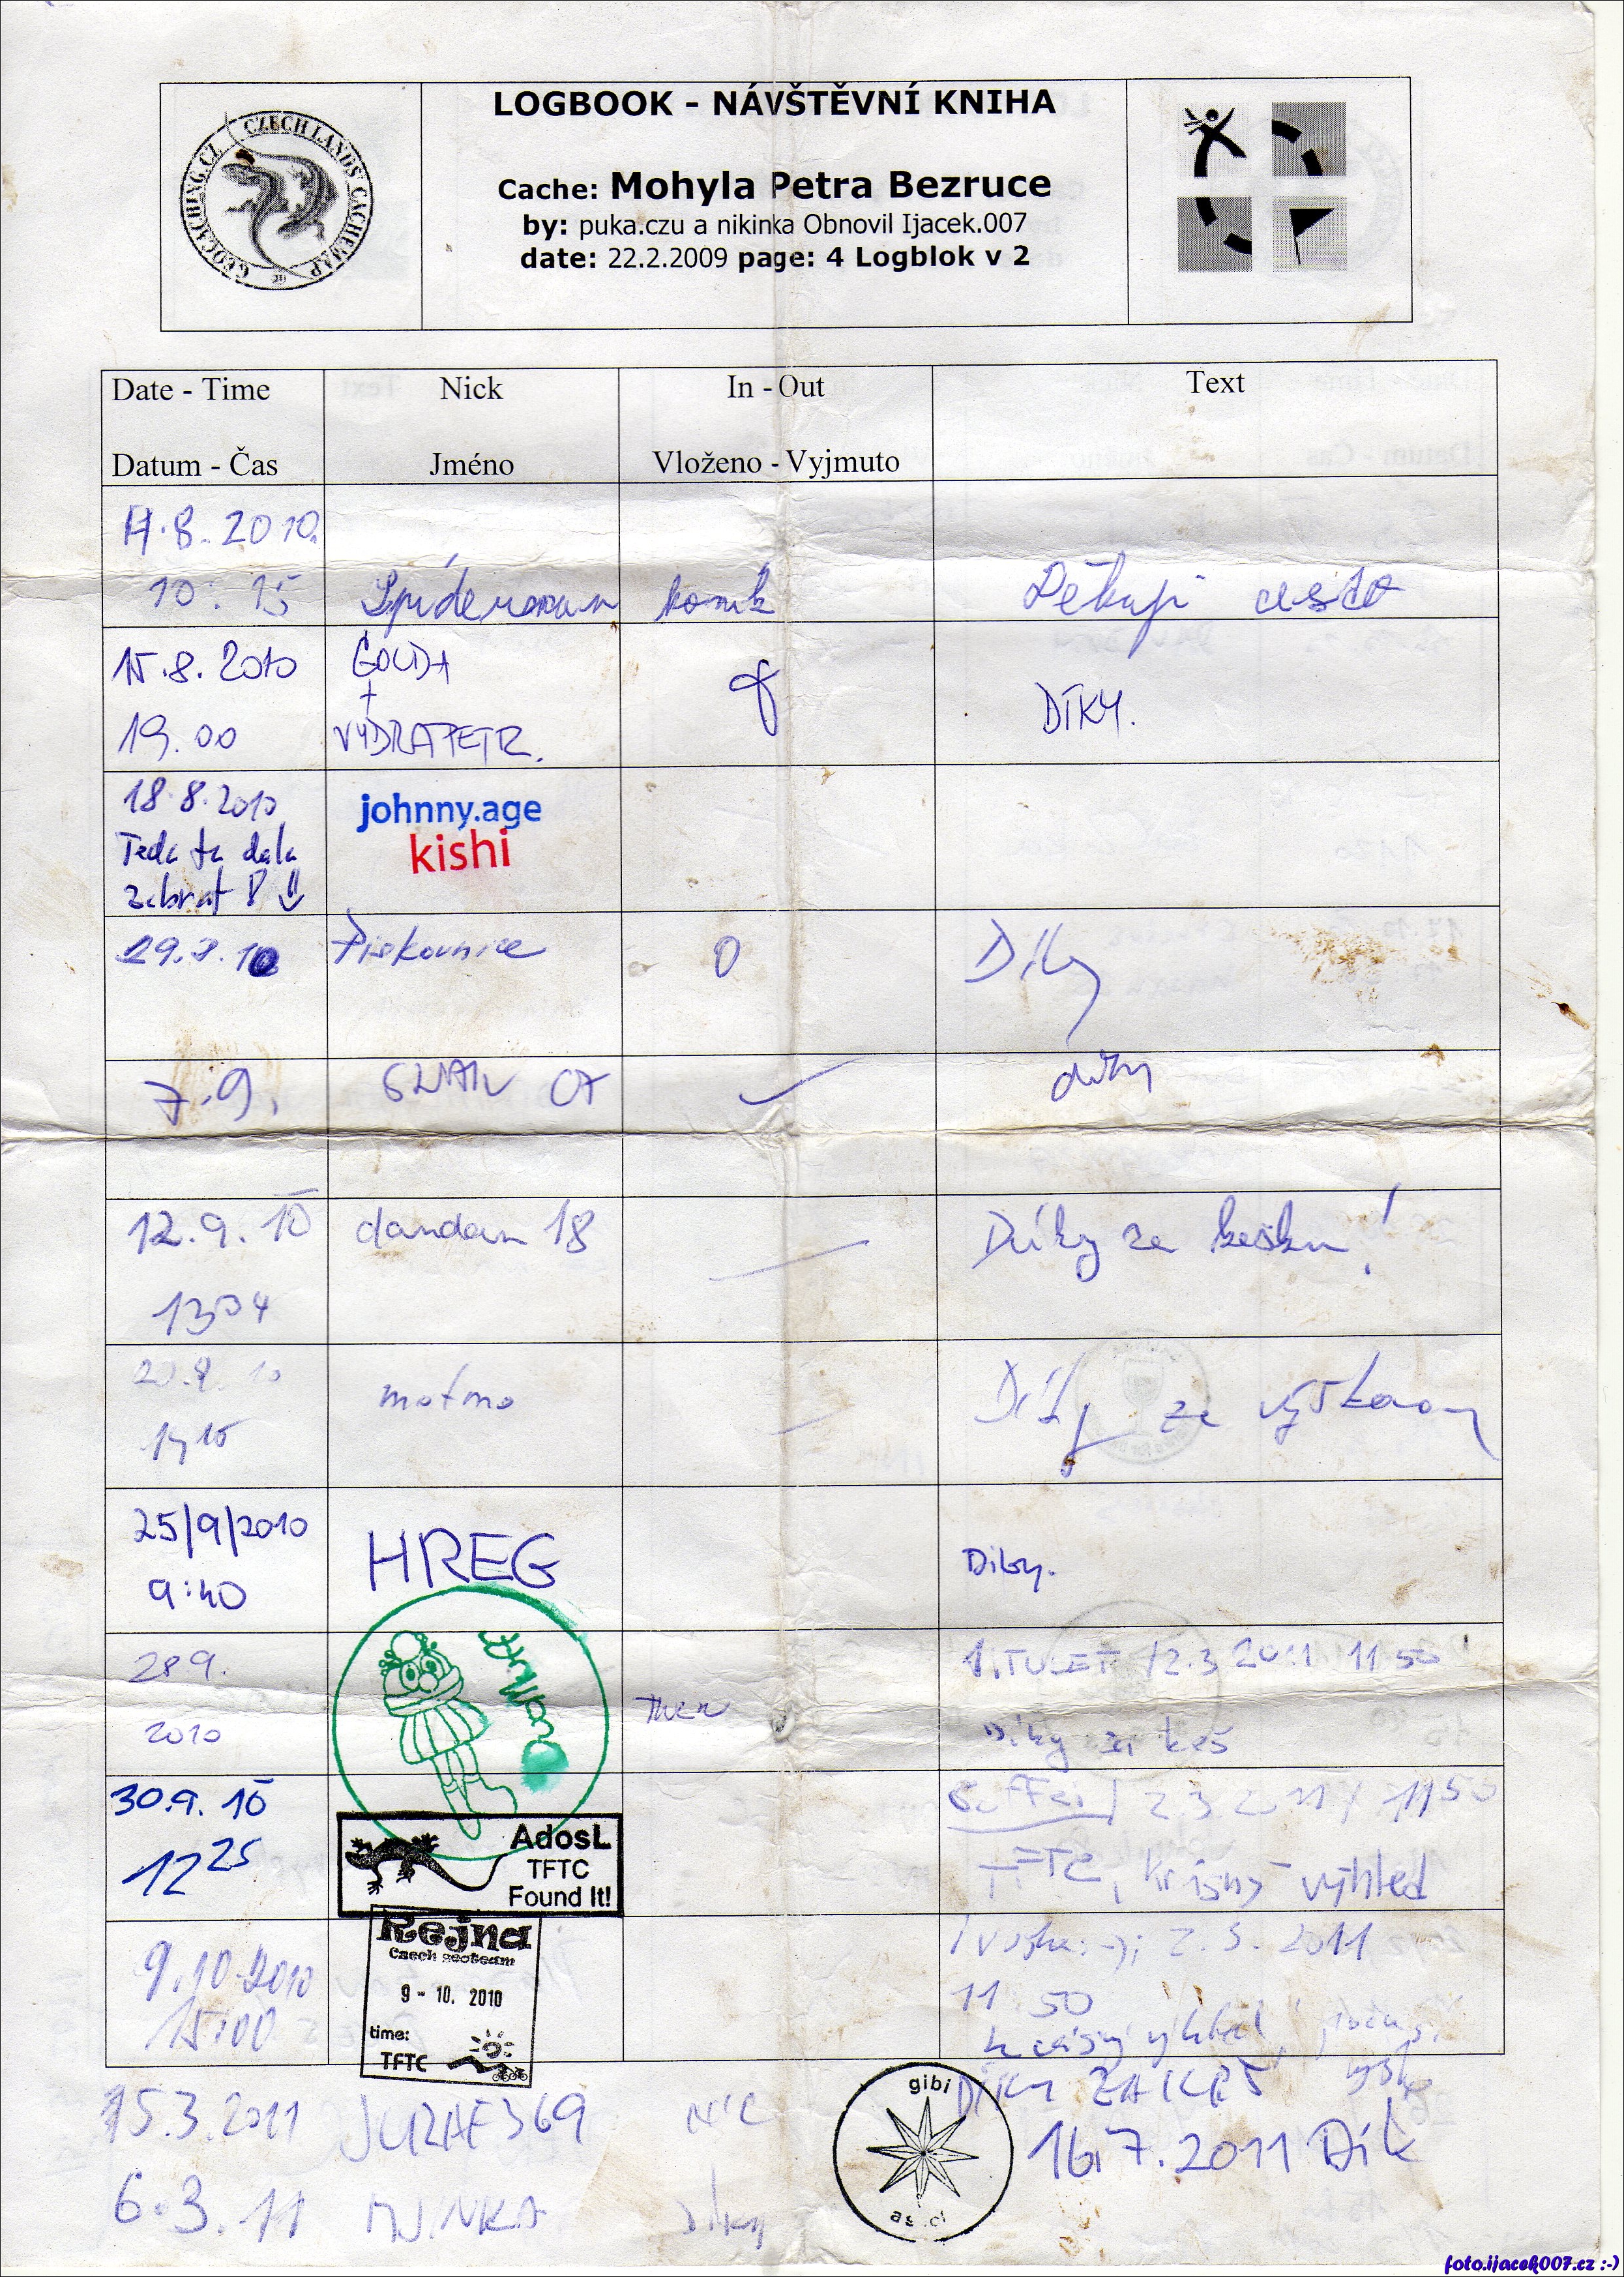 LOGBOOK - NÁVŠTĚVNÍ KNIHA
GEOCACHING.CZ CZECH LANDS' CACHEMAP
Cache: Mohyla Petra Bezruce
by: puka.czu a nikinka Obnovil Ijacek.007
date: 22.2.2009 page: 4 Logblok v 2
Date - Time Nick In - Out Text
Datum - Čas Jméno Vloženo - Vyjmuto
8. 2010
10:15 Spiderman Děkuji
15.8. 2010 GOLDA
+
19.00 VYDRAPETR. DÍKY.
18.8.2010 johnny.age
Teda ta dala kishi
zabrat
29.8.10 Pískovnice 0 Díky
7.9. díky
12.9.10 dandan 18 Díky za kešku!
13:34
motmo Díky za
25/9/2010 HREG
9:40 Díky.
28 9. 1.TULET 12.3 2011 11 50
2010 Díky za keš
30.9.10 2 3 2011 / 1150
12 25 AdosL
TFTC TFTC, krásný výhled
Found It!
9.10.2010 Rejna 2.3. 2011
15:00 Czech geoteam 11 50
9 - 10. 2010 krásný výhled,
time:
TFTC
15.3.2011 JURAF369 NIC gibi DÍKY ZA KEŠ
16.7.2011 Dík
6.3.11 díky
foto.ijacek007.cz :-)